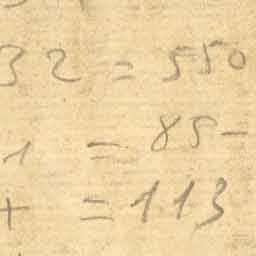 32 = 550
1 = 85 -
+ = 113